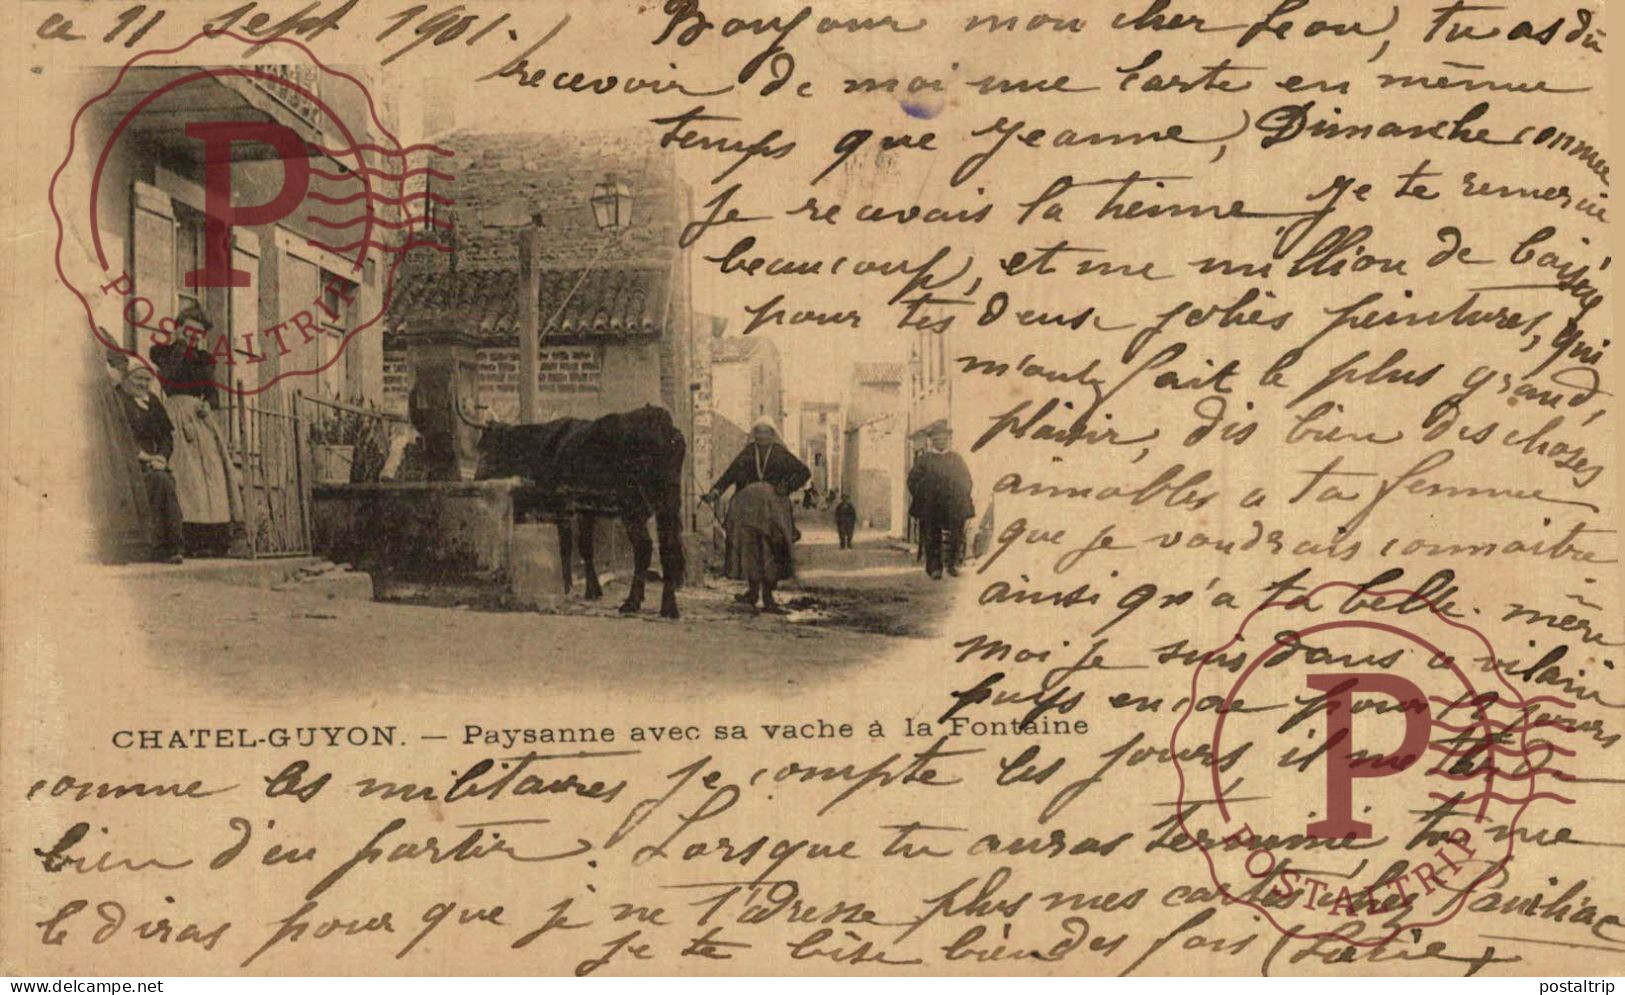 ce 11 Sept 1901.
Bonjour mon cher Leon, tu as dû
recevoir de moi une carte en même
temps que Jeanne, Dimanche comme
je recevais la tienne, Je te remercie
beaucoup, et me million de baisers
pour tes deux jolies peintures, qui
m'ont fait le plus grand,
plaisir, dis bien des choses
aimables a ta femme
que je voudrais connaitre
ainsi qu'a ta belle-mère
moi je suis dans ce vilain
pays encore pour 12 jours
CHATEL-GUYON. — Paysanne avec sa vache à la Fontaine
comme les militaires je compte les jours, il me tarde
bien d'en partir. Lorsque tu auras terminé tu me
le diras pour que je ne t'adresse plus mes cartes chez
je te bise bien des fois
POSTALTRIP
POSTALTRIP
delcampe.net
postaltrip